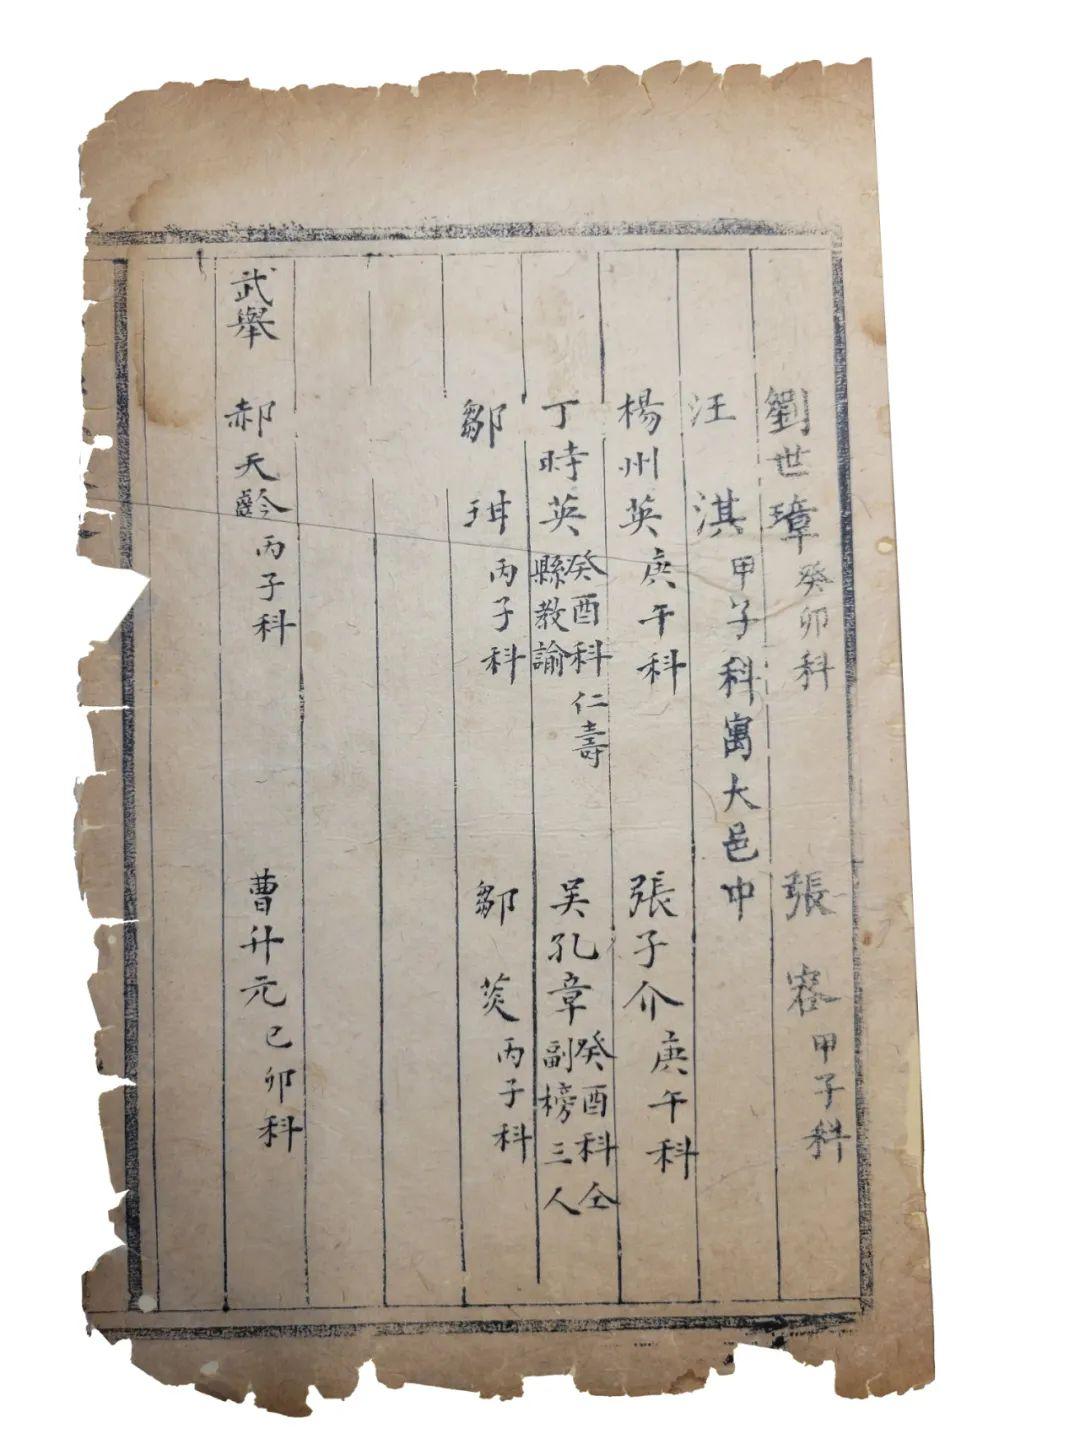 劉世璋癸卯科 張容甲子科
汪淇甲子科寓大邑中
楊州英庚午科 張子介庚午科
丁時英癸酉科仁壽縣教諭 吴孔章癸酉科仝副榜三人
鄒珥丙子科 鄒苂丙子科
武舉 郝天齡丙子科 曹升元己卯科